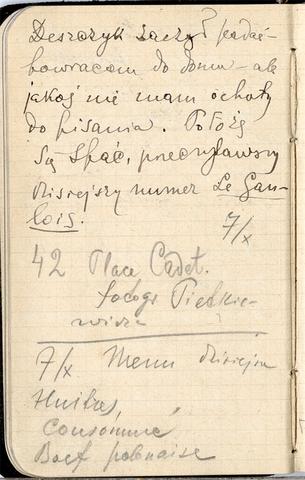 Deszczyk zaczął padać -
powracam do domu - ale
jakoś nie mam ochoty
do pisania. Położę
się spać, przeczytawszy
dzisiejszy numer Le Gau-
lois.
7/x
42 Place Cadet.
fotogr Pietkie-
wicz
7/x Menu dzisiejsze
Huitres,
Consommé
Boef polonaise